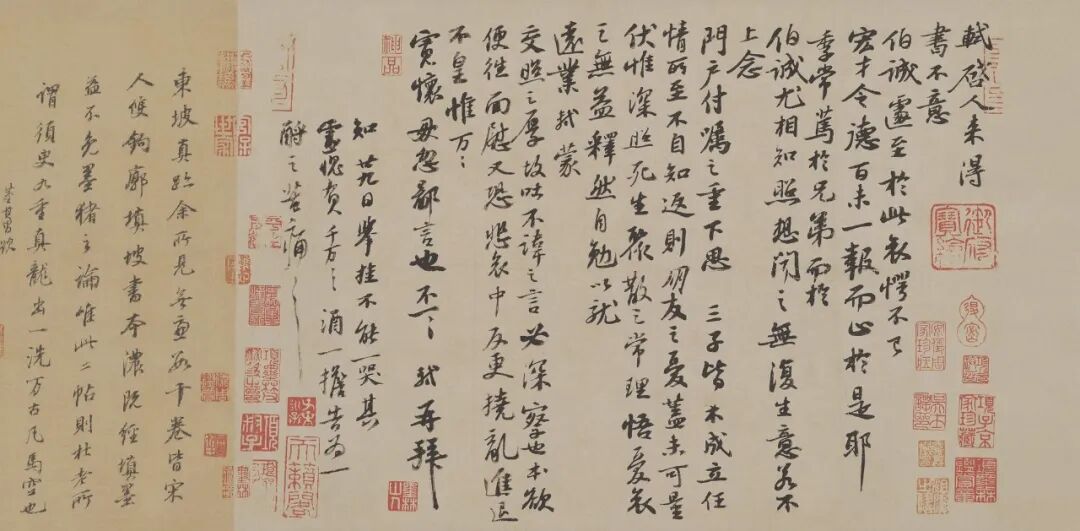 軾啓人来得
書不意
伯誠遽至於此哀愕不已
宏才令德百未一報而止於是耶
季常篤於兄弟而於
伯誠尤相知照想聞之無復生意若不
上念
門户付囑之重下思三子皆未成立任
情所至不自知返則朋友之憂蓋未可量
伏惟深照死生聚散之常理悟憂哀
之無益釋然自勉以就
遠業軾蒙
交照之厚故吐不諱之言必深察也本欲
便往面慰又恐悲哀中反更撓亂進退
不皇惟万〻
寛懷毋忽鄙言也不一〻軾再拜
知廿九日舉掛不能一哭其
靈愧負千万〻〻酒一擔告為一
酹之苦痛〻〻
東坡真跡余所見無慮數十卷皆宋
人雙鉤廓填坡書本濃既經填墨
益不免墨豬之論唯此二帖則杜老所
謂須臾九重真龍出一洗万古凡馬空也
董其昌題
御府寶繪
神品
項子京家珍藏
墨林山人
天籟閣